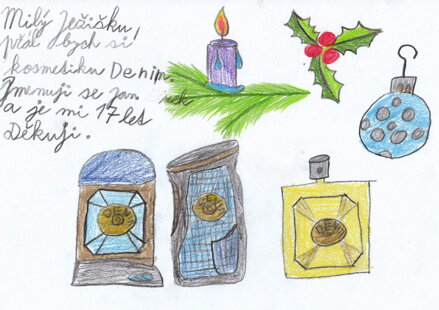 Milý Ježíšku,
přál bych si
kosmetiku Denim.
Jmenuji se Jan
a je mi 17 let
Děkuji.